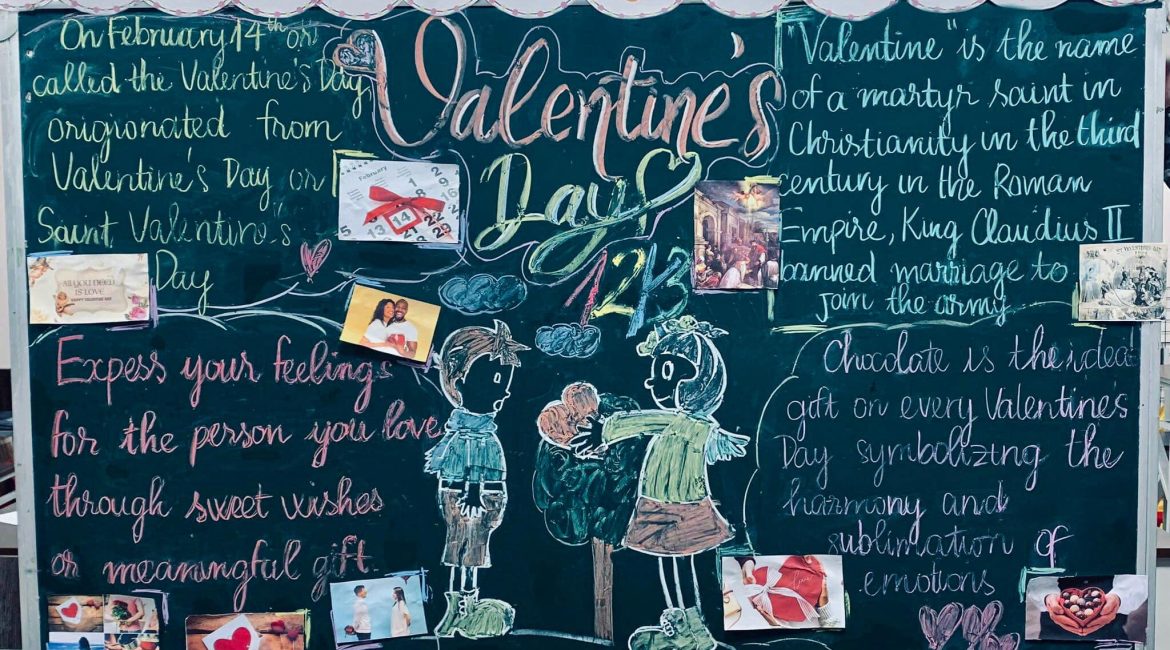 Valentine's
Day
12A3
On February 14th or
called the Valentine's Day
origionated from
Valentine's Day or
Saint Valentine's
Day
ALL YOU NEED
IS LOVE
HAPPY VALENTINE DAY
February
14
"Valentine" is the name
of a martyr saint in
Christianity in the third
century in the Roman
Empire, King Claudius II
banned marriage to
join the army
Expess your feelings
for the person you love
through sweet wishes
or meaningful gift
Chocolate is the ideal
gift on every Valentine's
Day symbolizing the
harmony and
sublimation of
emotions